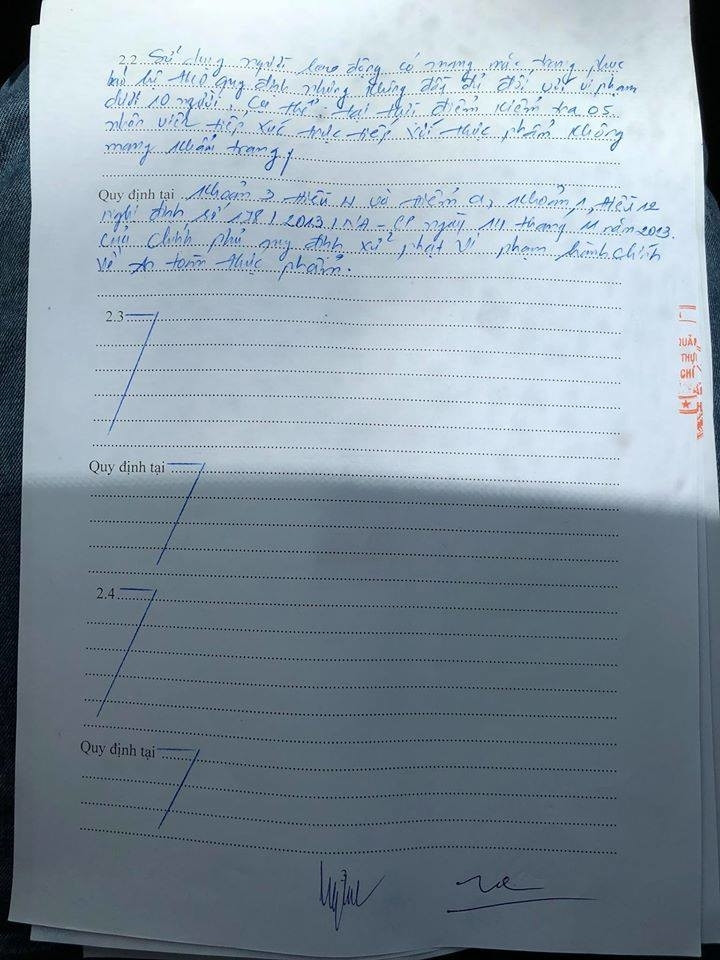 2.2 Sử dụng người lao động có mang mặc trang phục
bảo hộ theo quy định nhưng không đầy đủ đối với vi phạm
dưới 10 người. Cụ thể: tại thời điểm kiểm tra 05
nhân viên tiếp xúc trực tiếp với thực phẩm không
mang khẩu trang
Quy định tại Khoản 3 Điều 4 và điểm a, khoản 1, Điều 12
nghị định số 178/2013/NĐ-CP ngày 14 tháng 11 năm 2013
của Chính phủ quy định xử phạt vi phạm hành chính
về An toàn thực phẩm.
2.3
Quy định tại
2.4
Quy định tại
QUẢ
THỰ
CHÍ